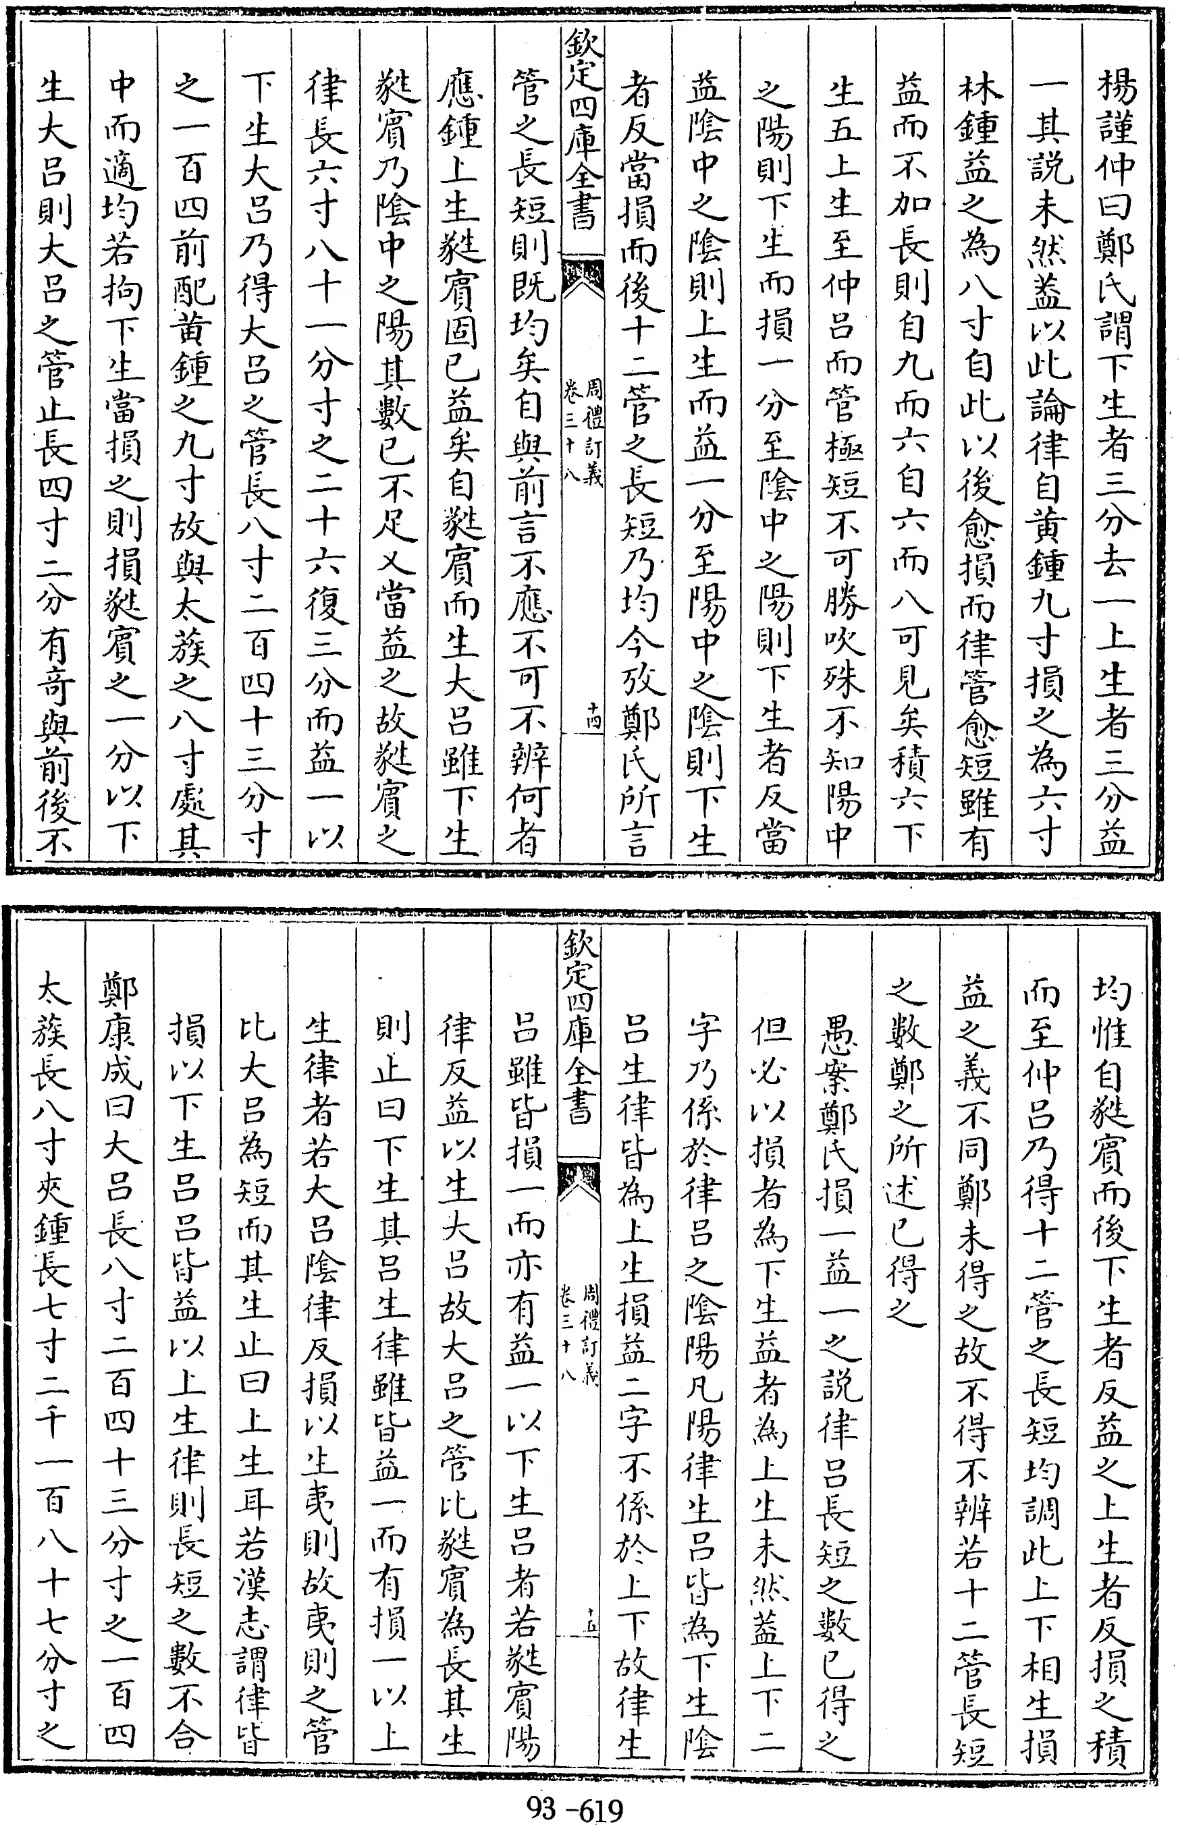 楊謹仲曰鄭氏謂下生者三分去一上生者三分益
一其説未然葢以此論律自黄鍾九寸損之為六寸
林鍾益之為八寸自此以後愈損而律管愈短雖有
益而不加長則自九而六自六而八可見矣積六下
生五上生至仲吕而管極短不可勝吹殊不知陽中
之陽則下生而損一分至陰中之陽則下生者反當
益陰中之陰則上生而益一分至陽中之陰則下生
者反當損而後十二管之長短乃均今攷鄭氏所言
欽定四庫全書
周禮訂義
卷三十八
十四
管之長短則既均矣自與前言不應不可不辨何者
應鍾上生蕤賓固已益矣自蕤賓而生大吕雖下生
蕤賓乃陰中之陽其數已不足又當益之故蕤賓之
律長六寸八十一分寸之二十六復三分而益一以
下生大吕乃得大吕之管長八寸二百四十三分寸
之一百四前配黄鍾之九寸故與太蔟之八寸處其
中而適均若拘下生當損之則損蕤賓之一分以下
生大吕則大吕之管止長四寸二分有竒與前後不
均惟自蕤賓而後下生者反益之上生者反損之積
而至仲吕乃得十二管之長短均調此上下相生損
益之義不同鄭未得之故不得不辨若十二管長短
之數鄭之所述已得之
愚案鄭氏損一益一之説律吕長短之數已得之
但必以損者為下生益者為上生未然葢上下二
字乃係於律吕之陰陽凡陽律生吕皆為下生陰
吕生律皆為上生損益二字不係於上下故律生
欽定四庫全書
周禮訂義
卷三十八
十五
吕雖皆損一而亦有益一以下生吕者若蕤賓陽
律反益以生大吕故大吕之管比蕤賓為長其生
則止曰下生其吕生律雖皆益一而有損一以上
生律者若大吕陰律反損以生夷則故夷則之管
比大吕為短而其生止曰上生耳若漢志謂律皆
損以下生吕吕皆益以上生律則長短之數不合
鄭康成曰大吕長八寸二百四十三分寸之一百四
太蔟長八寸夾鍾長七寸二千一百八十七分寸之
93-619